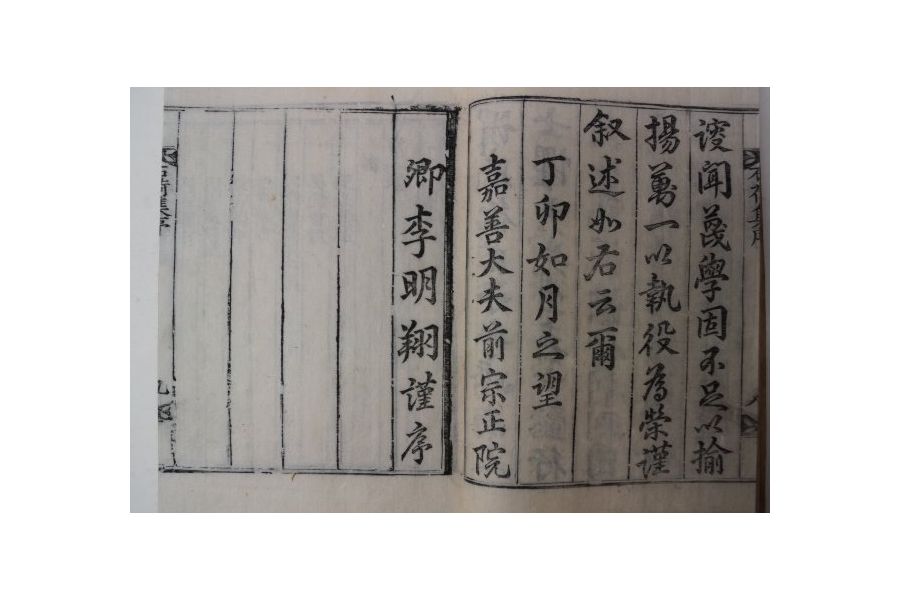 謏聞蔑學固不足以揄
揚萬一以執役為榮謹
叙述如右云爾
丁卯如月之望
嘉善大夫前宗正院
卿李明翔謹序
九